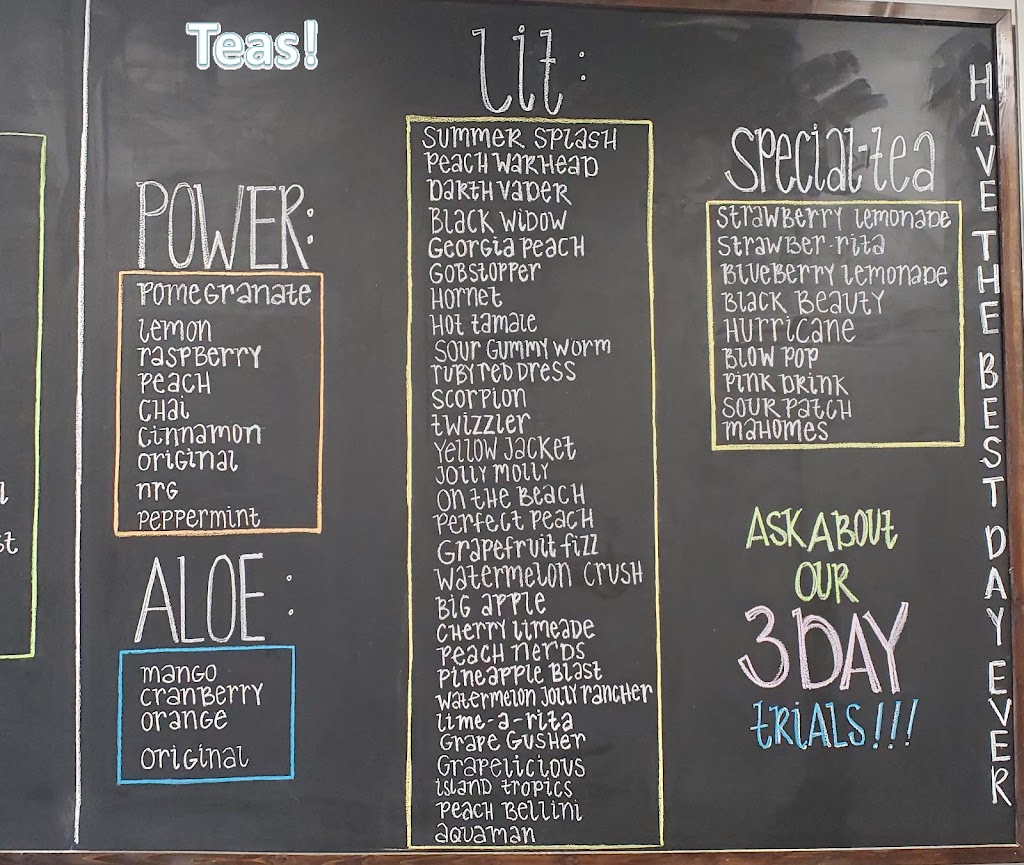 Teas!
POWER:
POMEGRANATE
LEMON
RASPBERRY
PEACH
CHAI
CINNAMON
ORIGINAL
NRG
PEPPERMINT
ALOE:
MANGO
CRANBERRY
ORANGE
ORIGINAL
Lit:
SUMMER SPLASH
PEACH WARHEAD
DARTH VADER
BLACK WIDOW
GEORGIA PEACH
GOBSTOPPER
HORNET
HOT TAMALE
SOUR GUMMY WORM
RUBY RED DRESS
SCORPION
TWIZZLER
YELLOW JACKET
JOLLY MOLLY
ON THE BEACH
PERFECT PEACH
GRAPEFRUIT FIZZ
WATERMELON CRUSH
BIG APPLE
CHERRY LIMEADE
PEACH NERDS
PINEAPPLE BLAST
WATERMELON JOLLY RANCHER
LIME-A-RITA
GRAPE GUSHER
GRAPELICIOUS
ISLAND TROPICS
PEACH BELLINI
AQUAMAN
SPECIAL-TEA
STRAWBERRY LEMONADE
STRAWBER-RITA
BLUEBERRY LEMONADE
BLACK BEAUTY
HURRICANE
BLOW POP
PINK DRINK
SOUR PATCH
MAHOMES
ASK ABOUT
OUR
3 DAY
TRIALS!!!
HAVE THE BEST DAY EVER